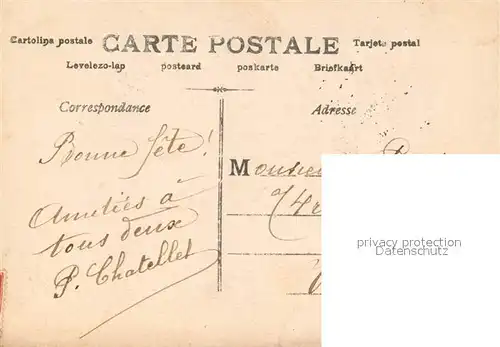 Cartolina postale CARTE POSTALE Tarjeta postal
Levelezo-lap postcard poskarte Briefkaart
Correspondance Adresse
Bonne fête!
Amitiés à
tous deux
P. Chatellet
privacy protection
Datenschutz